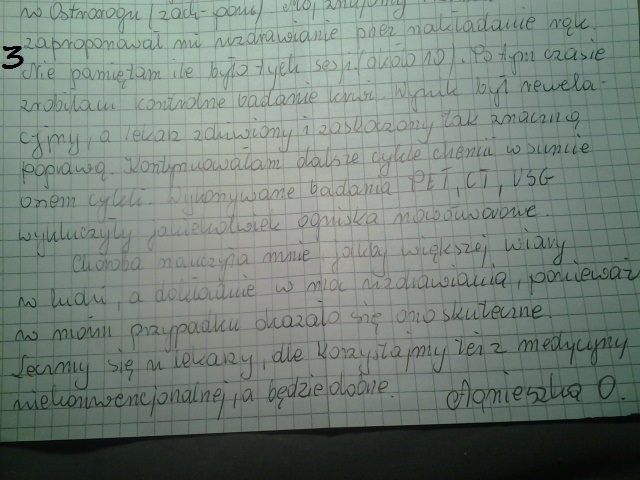 w Ostrorogu (zach-pom) Mój znajomy
zaproponował mi uzdrawianie przez nakładanie rąk.
3
Nie pamiętam ile było tych sesji (około 10). Po tym czasie
zrobiłam kontrolne badanie krwi. Wynik był rewela-
cyjny, a lekarz zdziwiony i zaskoczony tak znaczną
poprawą. Kontynuowałam dalsze cykle chemii w sumie
osiem cykli. Wykonywane badania PET, CT, USG
wykluczyły jakiekolwiek ogniska nowotworowe.
Choroba nauczyła mnie jakby większej wiary
w ludzi, a dokładnie w moc uzdrawiania, ponieważ
w moim przypadku okazało się ono skuteczne.
Leczmy się u lekarzy, ale korzystajmy też z medycyny
niekonwencjonalnej, a będzie dobrze. Agnieszka O.